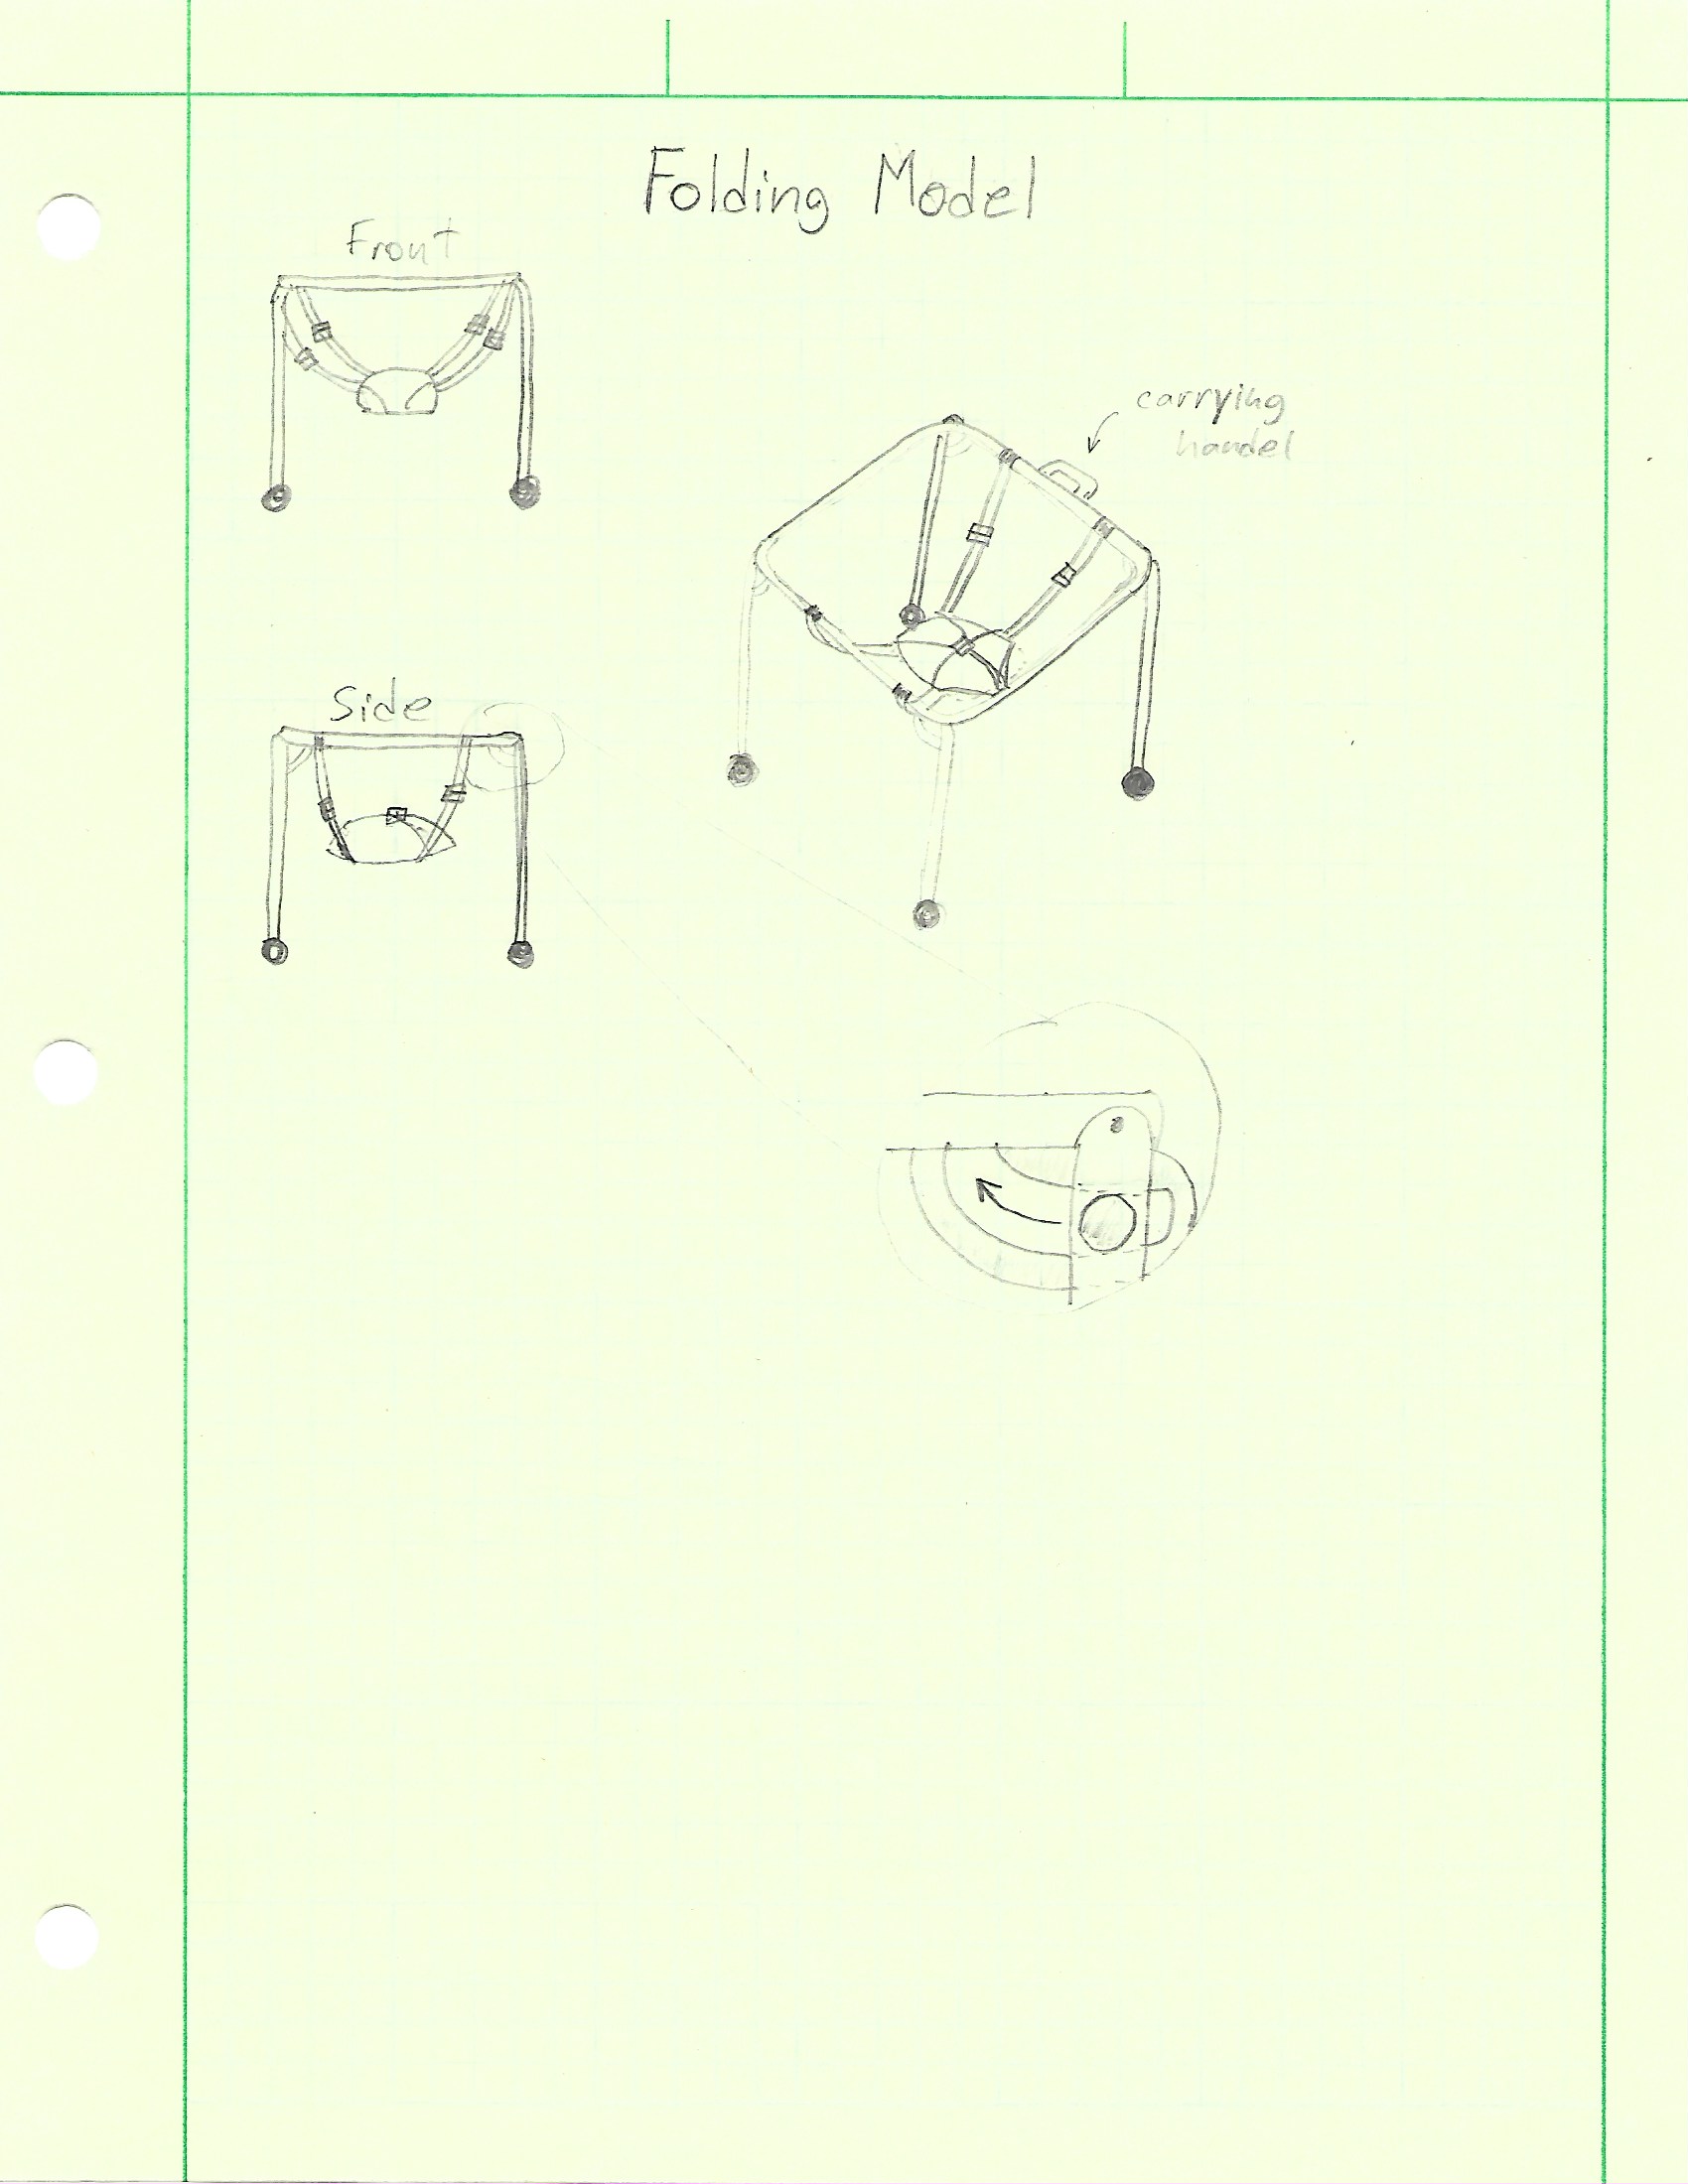 Folding Model
Front
carrying
handel
Side